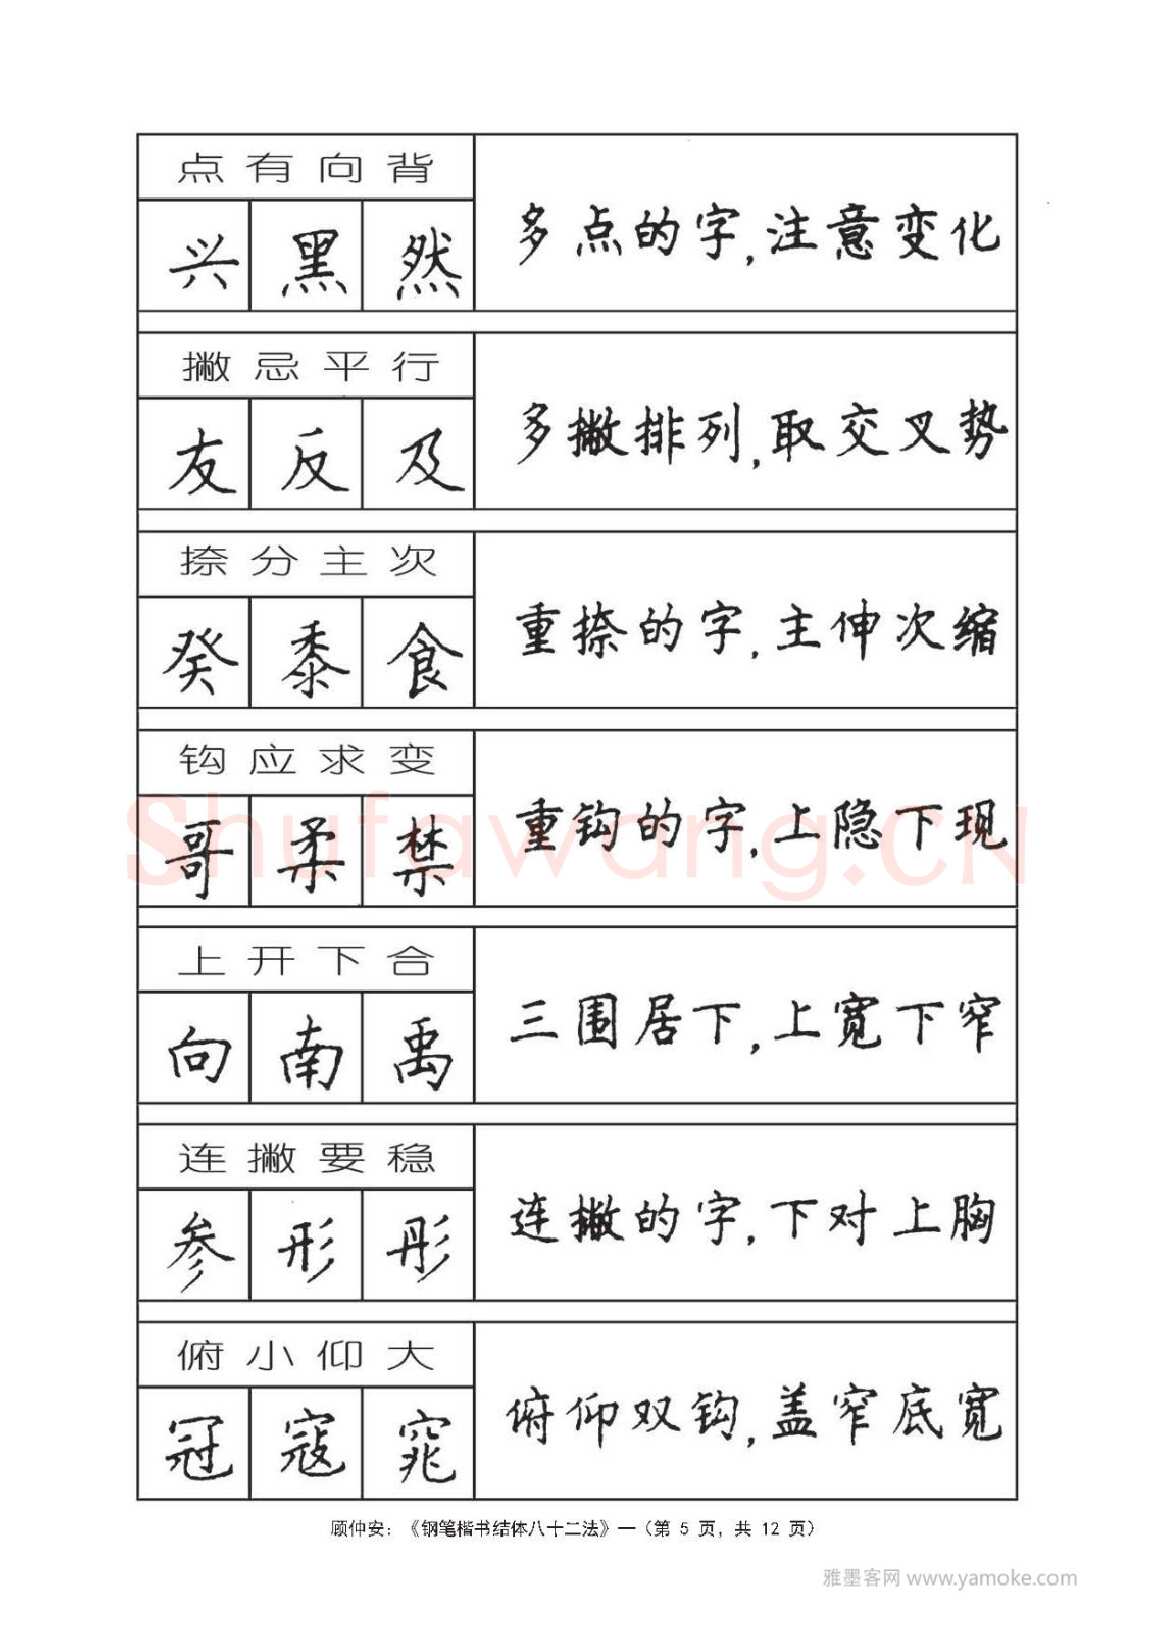 点有向背
兴 黑 然
多点的字,注意变化
撇忌平行
友 反 及
多撇排列,取交叉势
捺分主次
癸 黍 食
重捺的字,主伸次缩
钩应求变
哥 柔 禁
重钩的字,上隐下现
上开下合
向 南 禹
三围居下,上宽下窄
连撇要稳
参 形 彤
连撇的字,下对上胸
俯小仰大
冠 寇 窕
俯仰双钩,盖窄底宽
Shufawang.CN
顾仲安:《钢笔楷书结体八十二法》—(第 5 页,共 12 页)
雅墨客网 www.yamoke.com